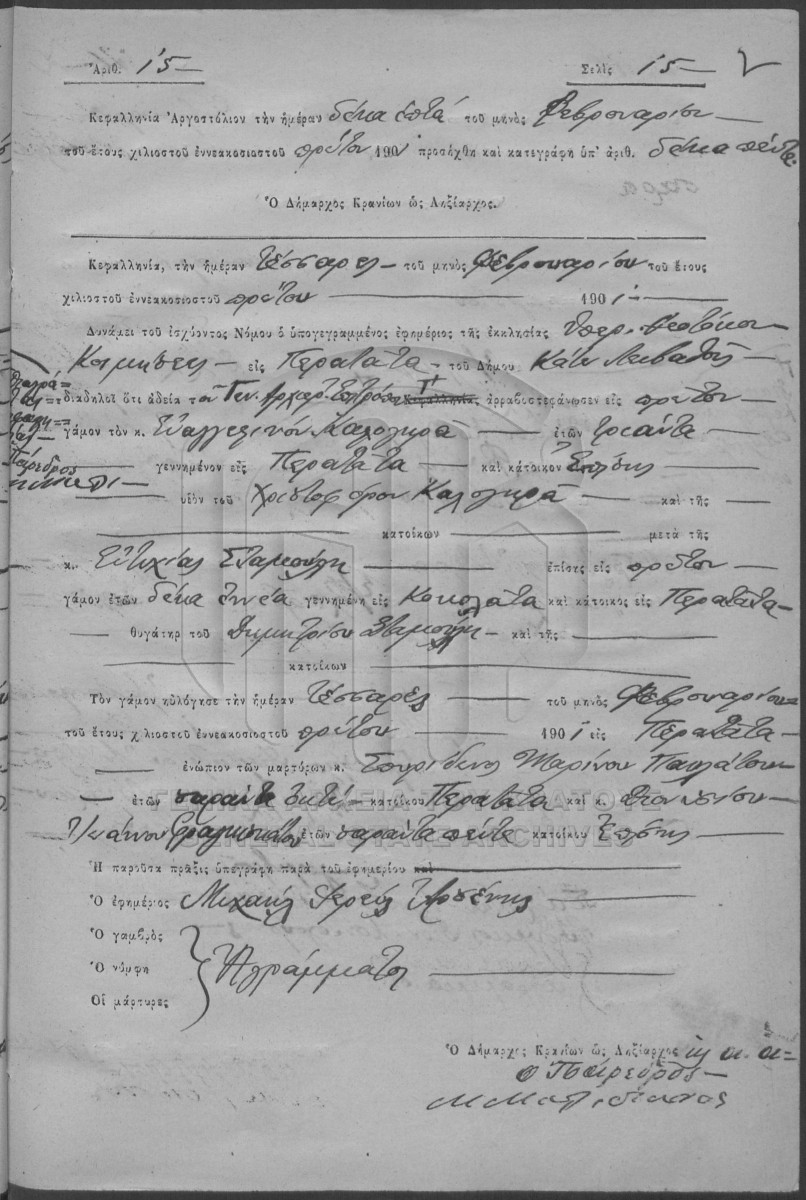 Ἀριθ. 15 — Σελὶς 15 —
Κεφαλληνία Ἀργοστόλιον τὴν ἡμέραν δέκα ἑπτά τοῦ μηνὸς Φεβρουαρίου —
τοῦ ἔτους χιλιοστοῦ ἐννεακοσιοστοῦ πρώτου 1901 προσήχθη καὶ κατεγράφη ὑπ' ἀριθ. δέκα πέντε
Ὁ Δήμαρχος Κρανίων ὡς Ληξίαρχος.
Κεφαλληνία, τὴν ἡμέραν τέσσαρες — τοῦ μηνὸς Φεβρουαρίου τοῦ ἔτους
χιλιοστοῦ ἐννεακοσιοστοῦ πρώτου — 1901 —
Δυνάμει τοῦ ἰσχύοντος Νόμου ὁ ὑπογεγραμμένος ἐφημέριος τῆς ἐκκλησίας Ὑπερ. Θεοτόκου —
Κοιμήσεως — εἰς Περατάτα — τοῦ Δήμου Κάτω Λειβαθοῦς —
διαδηλοῖ ὅτι ἀδεία τοῦ Γεν. Ἀρχιερ. Ἐπιτρόπου Κεφαλληνίας ἀρραβοστεφάνωσεν εἰς πρῶτον —
γάμον τὸν κ. Εὐαγγελινόν Καλογηρᾶ — ἐτῶν τριάντα —
γεννημένον εἰς Περατάτα — καὶ κάτοικον —
Πάρεδρος
υἱὸν τοῦ Χριστοφόρου Καλογηρᾶ — καὶ τῆς —
— κατοίκων — μετὰ τῆς
κ. Εὐτυχίας Σταμούλη — ἐπίσης εἰς πρῶτον —
γάμον ἐτῶν δέκα ἐννέα γεννημένη εἰς Κοκολάτα καὶ κάτοικος εἰς Περατάτα
— θυγάτηρ τοῦ Δημητρίου Σταμούλη — καὶ τῆς —
— κατοίκων —
Τὸν γάμον ηὐλόγησε τὴν ἡμέραν τέσσαρες — τοῦ μηνὸς Φεβρουαρίου
τοῦ ἔτους χιλιοστοῦ ἐννεακοσιοστοῦ πρώτου — 1901 εἰς Περατάτα —
— ἐνώπιον τῶν μαρτύρων κ. Σπυρίδωνος Μαρίνου Παυλάτου
— ἐτῶν σαράντα ὀκτώ — κατοίκου Περατάτα καὶ κ. Διονυσίου —
Ἰωάννου Φραγκισκάτου ἐτῶν σαράντα πέντε κατοίκου —
Ἡ παροῦσα πρᾶξις ὑπεγράφη παρὰ τοῦ ἐφημερίου καὶ
Ὁ ἐφημέριος Μιχαήλ Ἱερεύς Ἀρσένης —
Ὁ γαμβρὸς
Ὁ νύμφη Ἀγράμματοι —
Οἱ μάρτυρες
Ὁ Δήμαρχος Κρανίων ὡς Ληξίαρχος
ὁ Πάρεδρος —
ΓΕΝΙΚΑ ΑΡΧΕΙΑ ΤΟΥ ΚΡΑΤΟΥΣ
GENERAL STATE ARCHIVES